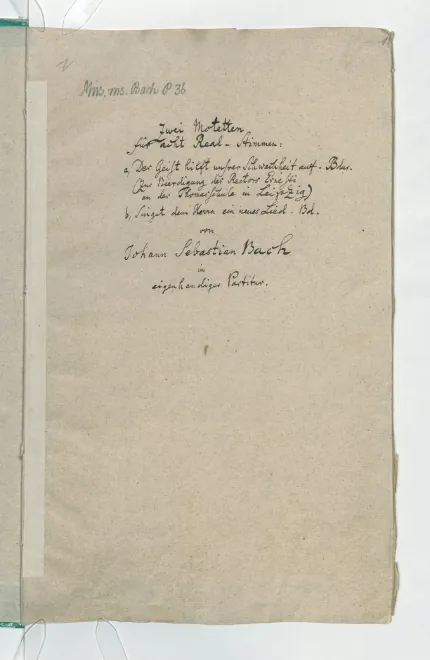 Mus. ms. Bach P 36
Zwei Motetten
für acht Real-Stimmen:
a, Der Geist hilft unsrer Schwachheit auf - Bdur.
(Zur Beerdigung des Rectors Ernesti
an der Thomasschule in Leipzig)
b, Singet dem Herrn ein neues Lied - Bd.
von
Johann Sebastian Bach
in
eigenhändiger Partitur.